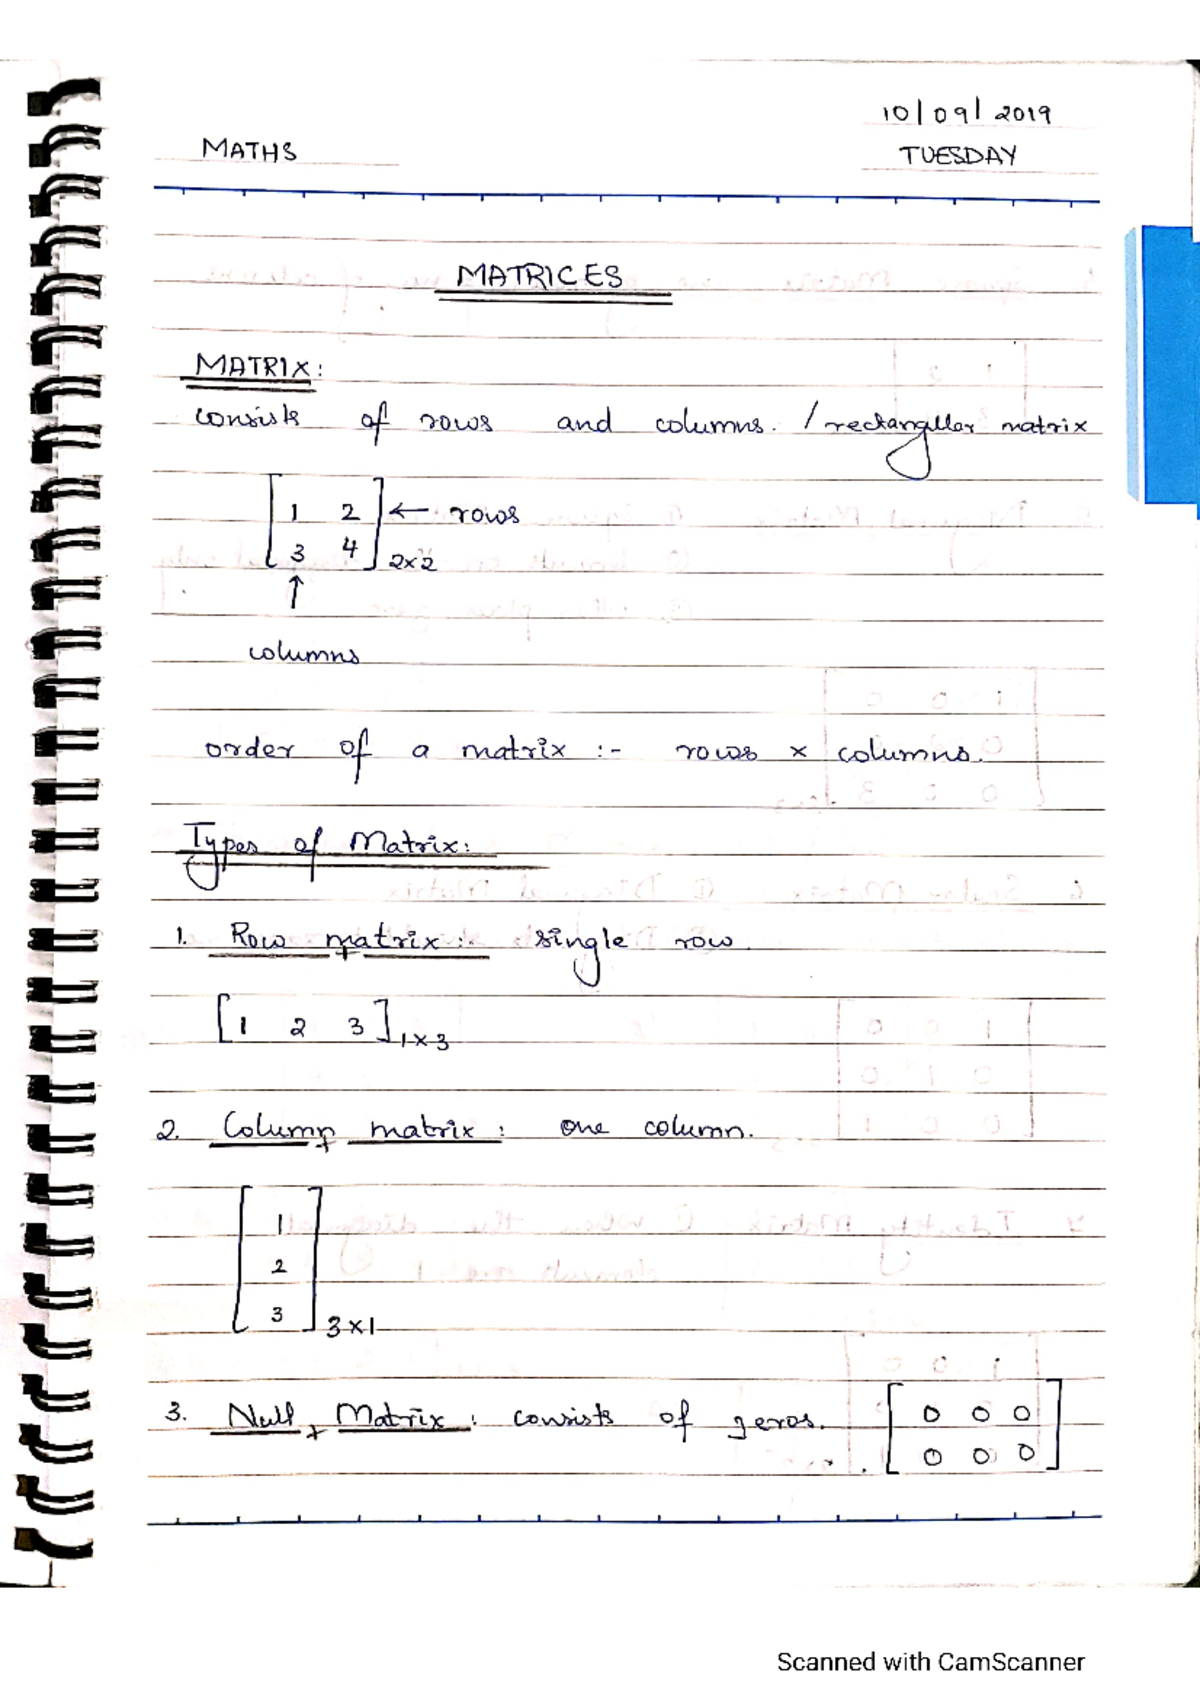 10/09/2019
MATHS
TUESDAY
MATRICES
MATRIX:
consists of rows and columns. / rectangular matrix
1 2 ← rows
3 4 2×2
↑
columns
order of a matrix :- rows × columns.
Types of Matrix:
1. Row matrix: single row.
[1 2 3] 1×3
2. Column matrix: one column.
1
2
3 3×1
3. Null Matrix: consists of zeros. 0 0 0
0 0 0
Scanned with CamScanner